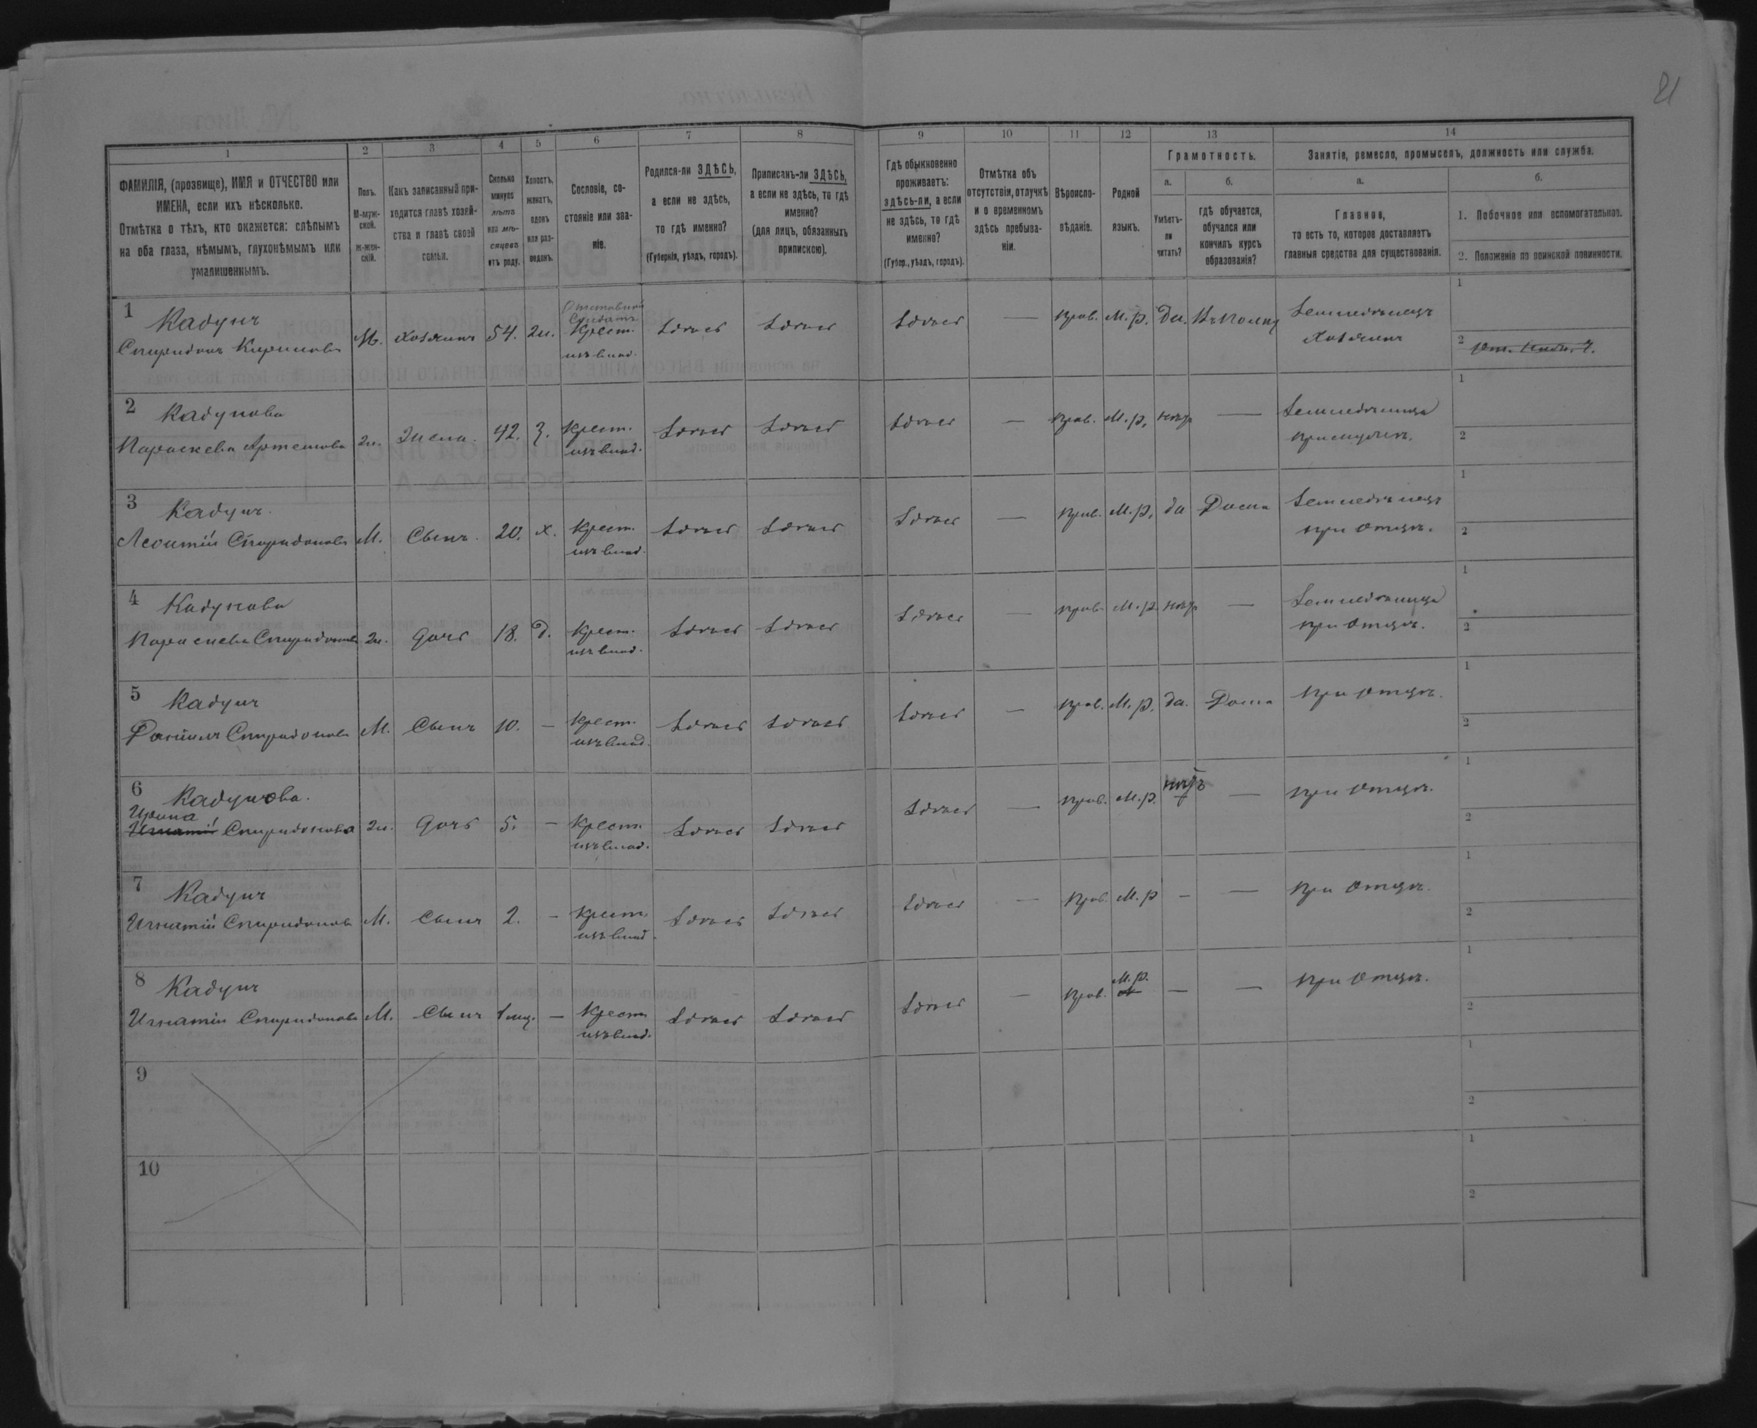 21
1 2 3 4 5 6 7 8 9 10 11 12 13 14
ФАМИЛІЯ, (прозвище), ИМЯ и ОТЧЕСТВО или
ИМЕНА, если ихъ нѣсколько.
Отмѣтка о тѣхъ, кто окажется: слѣпымъ
на оба глаза, нѣмымъ, глухонѣмымъ или
умалишеннымъ.
Полъ.
М-муж-
ской.
Ж-жен-
скій.
Какъ записанный при-
ходится главѣ хозяй-
ства и главѣ своей
семьи.
Сколько
минуло
лѣтъ
или мѣ-
сяцевъ
отъ роду.
Холостъ,
женатъ,
вдовъ
или раз-
веденъ.
Сословіе, со-
стояніе или зва-
ніе.
Родился-ли ЗДѢСЬ,
а если не здѣсь,
то гдѣ именно?
(Губернія, уѣздъ, городъ).
Приписанъ-ли ЗДѢСЬ,
а если не здѣсь, то гдѣ
именно?
(для лицъ, обязанныхъ
припискою).
Гдѣ обыкновенно
проживаетъ:
здѣсь-ли, а если
не здѣсь, то гдѣ
именно?
(Губер., уѣздъ, городъ).
Отмѣтка объ
отсутствіи, отлучкѣ
и о временномъ
здѣсь пребыва-
ніи.
Вѣроиспо-
вѣданіе.
Родной
языкъ.
Грамотность.
а.
Умѣетъ-
ли
читать?
б.
гдѣ обучается,
обучался или
кончилъ курсъ
образованія?
Занятіе, ремесло, промыселъ, должность или служба.
а.
Главное,
то есть то, которое доставляетъ
главныя средства для существованія.
б.
1. Побочное или вспомогательное.
2. Положеніе по воинской повинности.
1 Кадунъ
Спиридонъ Кириловъ М. хозяинъ 54. ж. Отставной
Солдатъ
Крест.
изъ влад. Здѣсь Здѣсь Здѣсь — прав. М. р. Да. Земледѣлецъ
Хозяинъ
1
2
2 Кадунова
Параскева Артемова ж. Жена. 42. З. Крест.
изъ влад. Здѣсь Здѣсь Здѣсь — прав. М. р. нѣтъ — Земледѣлица
при мужѣ.
1
2
3 Кадунъ.
Леонтій Спиридоновъ М. Сынъ. 20. х. Крест.
изъ влад. Здѣсь Здѣсь Здѣсь — прав. М. р. да Дома Земледѣлецъ
при отцѣ.
1
2
4 Кадунова
Параскева Спиридонова ж. Дочь 18. Д. Крест.
изъ влад. Здѣсь Здѣсь Здѣсь — прав. М. р. нѣтъ — Земледѣлица
при отцѣ.
1
2
5 Кадунъ
Даніилъ Спиридоновъ М. Сынъ 10. — Крест.
изъ влад. Здѣсь Здѣсь Здѣсь — прав. М. р. да. Дома при отцѣ.
1
2
6 Кадунова.
Ирина
Игнатій Спиридонова ж. Дочь 5. — Крест.
изъ влад. Здѣсь Здѣсь Здѣсь — прав. М. р. нѣтъ — при отцѣ.
1
2
7 Кадунъ
Игнатій Спиридоновъ М. Сынъ 2. — Крест.
изъ влад. Здѣсь Здѣсь Здѣсь — прав. М. р — — при отцѣ.
1
2
8 Кадунъ
Игнатій Спиридоновъ М. Сынъ 1 мѣц. — Крест.
изъ влад. Здѣсь Здѣсь Здѣсь — прав. М. р. — — при отцѣ.
1
2
9
1
2
10
1
2